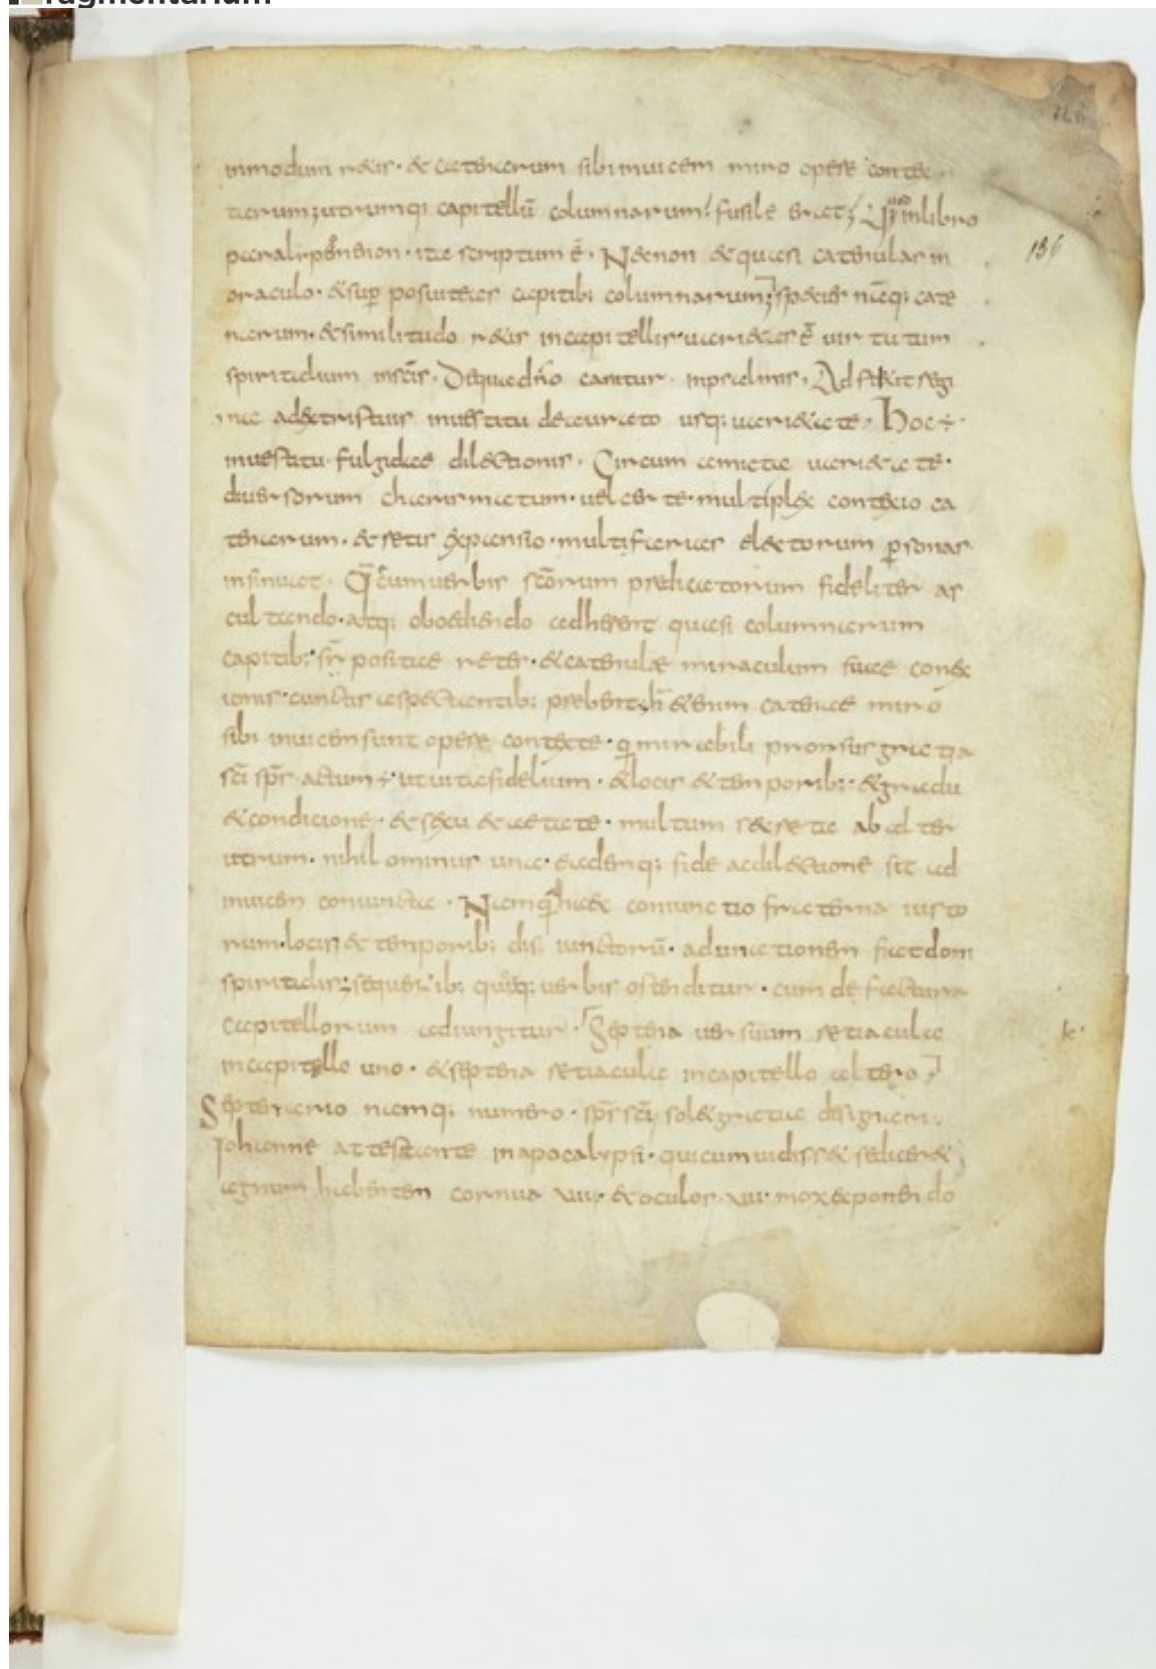 ragmentarium
126
inmodum retis · et catenarum sibi inuicem miro opere contex
tarum; utrumq; capitellũ columnarum fusile erat; Qđ inlibro
136
paralypomenon · ita scriptum ẽ · Necnon et quasi catenulas in
oraculo · et sup posuit eas capitib; columnarum; species nãq; cate
narum · et similitudo retis incapitellis · uarietas ẽ uirtutum
spiritalium inscĩs · Dequa dño canitur inpsalmis · Adstitit regi
na adextristuis inuestitu deaurato usq; uarietate · Hoc ÷
inuestitu fulgidae dilectionis · Circum amicta uarietate ·
diuersorum charismatum · uel certe multiplex contexio ca
tenarum · et retis expansio · multifarias electorum personas
insinuat · Q̃ cum uerbis scõrum predicatorum fideliter as
cultando · atq; oboediendo adherent quasi columnarum
capitib; sr̃ positae rete · et catenulae miraculum suae conex
ionis · cunctis aspectantib; prebent; h̃ etenim catenae miro
sibi inuicem sunt opere contexte · q̃ mirabili prorsus gratia
scĩ sp̃s actum ÷ ut uita fidelium · et locis et temporib; · et gradu
et condicione · et sexu et aetate · multum secreta ab alter
utrum · nihilominus una · eademq; fide ac dilectione sit ad
inuicem coniuncta · Namq; haec coniunctio fraterna iusto
rum · locis et temporib; disiunctorũ · adunationem fiat dom
spiritalis; sequentib; quoq; uerbis ostenditur · cum de factura
capitellorum adiungitur · Septena uersuum retiacula k·
incapitello uno · et septena retiacula incapitello altero
Septenario namq; numero · sp̃s scĩ solet gratia designari ·
Iohanne attestante inapocalypsi · qui cum uidisse se diceret
agnum habentem cornua uii · et oculos uii · mox exponendo